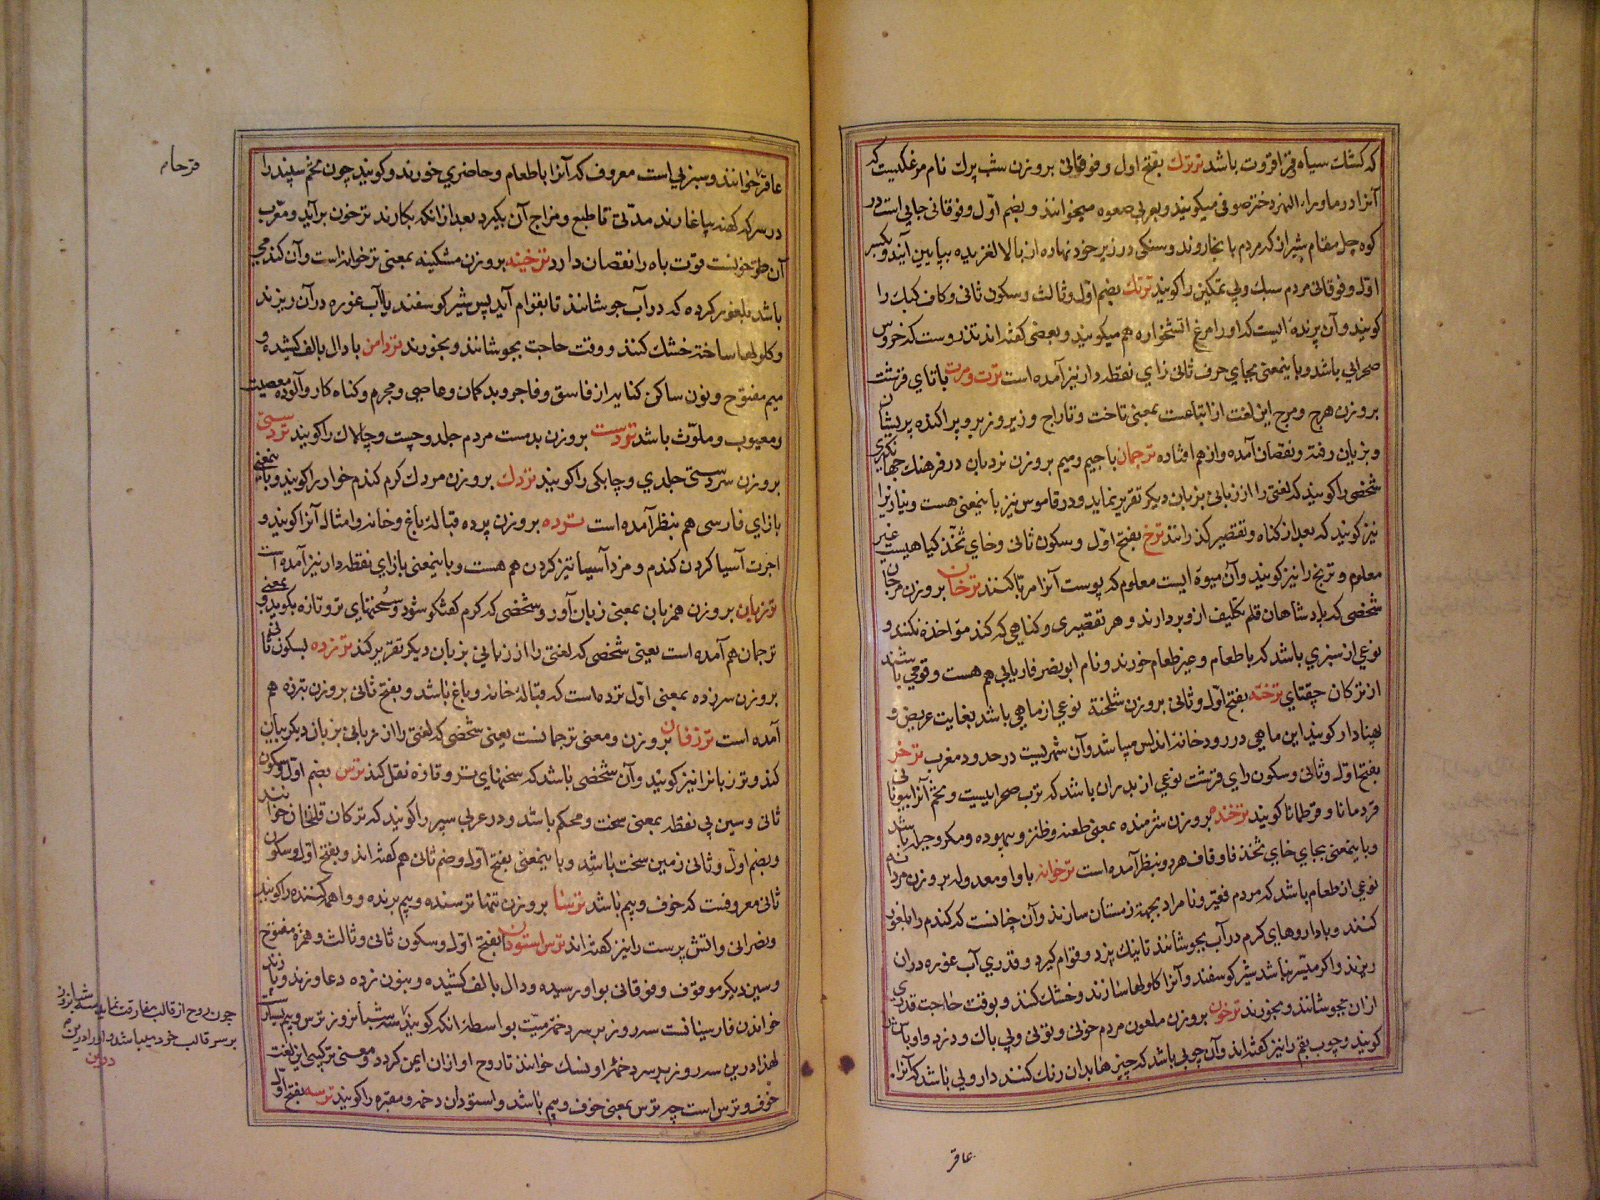 که کشک سیاه و قراقروت باشد ترترک بفتح اول و فوقانی بروزن شب پرک نام مرغکیست که
آنرا در ماوراء النهر دختر صوفی میگویند و بعربی صعوه میخوانند و بضم اول و فوقانی جایی است در
کوه چل مقام شیراز که مردم بانجا روند و سنکی در زیر خود نهاده از بالا لغزیده بپایین آیند و بکسر
اول و فوقانی مردم سبک و بی تمکین را گویند ترتک بضم اول و ثالث و سکون ثانی و کاف کبک را
گویند و آن پرنده ایست که او را مرغ آتشخواره هم میگویند و بعضی گفته اند تذرو است که خروس
صحرایی باشد و باینمعنی بجای حرف ثانی زای نقطه دار نیز آمده است ترت و مرت با تای قرشت
بروزن هرج و مرج این لغت از اتباعست بمعنی تاخت و تاراج و زیر و زبر و پراکنده و پریشان
و بزیان رفته و نقصان آمده و از هم افتاده ترجمان با جیم و میم بروزن نردبان در فرهنک جهانکیری
شخصی را گویند که لغتی را از زبانی بزبان دیگر تقریر نماید و در قاموس نیز باینمعنی هست و نیازیرا
نیز گویند که بعد از گناه و تقصیر گذرانند ترخ بفتح اول و سکون ثانی و خای ثخذ گیاهیست غیر
معلوم و ترنج را نیز گویند و آن میوه ایست معلوم که پوست آنرا مربا کنند ترخان بروزن مرجان
شخصی که پادشاهان قلم تکلیف از و بردارند و هر تقصیری و گناهی که کند مؤاخذه نکنند و
نوعی از سبزی باشد که با طعام و غیر طعام خورند و نام ابو نصر فاریابی هم هست و قومی باشند
از ترکان چقتای ترخته بفتح اول و ثانی بروزن شلخته نوعی از ماهی باشد بغایت عریض و
پهنا دار گویند این ماهی در رودخانه اندلس میباشد و آن شهریست در حدود مغرب ترخر
بفتح اول و ثانی و سکون رای قرشت نوعی از بدران باشد که ترب صحراییست و تخم آنرا بیونانی
قردمانا و قرطمانا گویند ترخنده بروزن شرمنده بمعنی طعنه و طنز و بیهوده و مکر و حیله باشد
و باینمعنی بجای خای ثخذ فا و قاف هر دو بنظر آمده است ترخوانه با واو معدوله بروزن مردانه
نوعی از طعام باشد که مردم فقیر و نامراد بجهة زمستان سازند و آن چنانست که گندم را بلغور
کنند و با داروهای گرم در آب بجوشانند تا نیک پزد و قوام گیرد و قدری آب غوره در آن
ریزند و اگر میسر نباشد شیر گوسفند و آنرا گلولها سازند و خشک کنند و بوقت حاجت قدری
از آن بجوشانند و بخورند ترخون بروزن ملعون مردم خونی و تونی و بی باک و دزد و اوباش
گویند و چوب بقم را نیز گفته اند و آن چوبی باشد که چیزها بدان رنک کنند دارویی باشد که آنرا
عاقر
عاقر قرحا خوانند و سبزیی است معروف که آنرا با طعام و حاضری خورند و گویند چون تخم سپند را
در سرکه کهنه بپاغارند مدتی تا طبع و مزاج آن بگیرد بعد از آنکه بکارند ترخون برآید و معرب
آن طرخونست قوت باه را نقصان دارد ترخینه بروزن مشکینه بمعنی ترخوانه است و آن گندمی
باشد بلغور کرده که در آب جوشانند تا بقوام آید پس شیر گوسفند یا آب غوره در آن ریزند
و گلولها ساخته خشک کنند و وقت حاجت بجوشانند و بخورند تردامن با دال بالف کشیده و
میم مفتوح و نون ساکن کنایه از فاسق و فاجر و بدکمان و عاصی و مجرم و گناه کار و آلوده معصیت
و معیوب و ملوث باشد تردست بروزن بدمست مردم جلد و چست و چالاک را گویند تردستی
بروزن سردستی جلدی و چابکی را گویند تردک بروزن مردک کرم گندم خوار را گویند و باینمعنی
با زای فارسی هم بنظر آمده است ترده بروزن پرده قبالهٔ باغ و خانه و امثال آنرا گویند و
اجرت آسیا کردن گندم و مزد آسیا تیز کردن هم هست و باینمعنی با زای نقطه دار نیز آمده است
ترزبان بروزن همزبان بمعنی زبان آور و شخصی که گرم گفتگو شود و سخنهای تر و تازه بگوید و بمعنی
ترجمان هم آمده است یعنی شخصی که لغتی را از زبانی بزبان دیگر تقریر کند ترزده بسکون ثانی
بروزن سرزده بمعنی اول ترده است که قبالهٔ خانه و باغ باشد و بفتح ثانی بروزن تبرزه هم
آمده است ترزفان بروزن و معنی ترجمانست یعنی شخصی که لغتی را از زبانی بزبان دیگر بیان
کند و ترزبانرا نیز گویند و آن شخصی باشد که سخنهای تر و تازه نقل کند ترس بضم اول و سکون
ثانی و سین بی نقطه بمعنی سخت و محکم باشد و در عربی سپر را گویند که ترکان قلخان خوانند
و بضم اول و ثانی زمین سخت باشد و باینمعنی بفتح اول و ضم ثانی هم گفته اند و بفتح اول و سکون
ثانی معروفست که خوف و بیم باشد ترسا بروزن تنها ترسنده و بیم برنده و واهمه کننده را گویند
و نصرانی و آتش پرست را نیز گفته اند ترس استودان بفتح اول و سکون ثانی و ثالث و همزه مفتوح
و سین دیگر موقوف و فوقانی بواو رسیده و دال بالف کشیده و بنون زده دعا و زند و پازند
خواندن فارسیانست سه روز بر سر دخمه میت بواسطه آنکه گویند سه شبانروز ترس و بیم بسیار است
لهذا درین سه روز بر سر دخمهٔ او نسک خوانند تا روح او از آن ایمن گردد و معنی ترکیبی این لغت
خوف و ترس است چه ترس بمعنی خوف و بیم باشد و استودان دخمه و مقبره را گویند ترسه بفتح اول
قرحا
چون روح از قالب مفارقت نماید سه شبانروز
بر سر قالب خود میباشد و او را درین